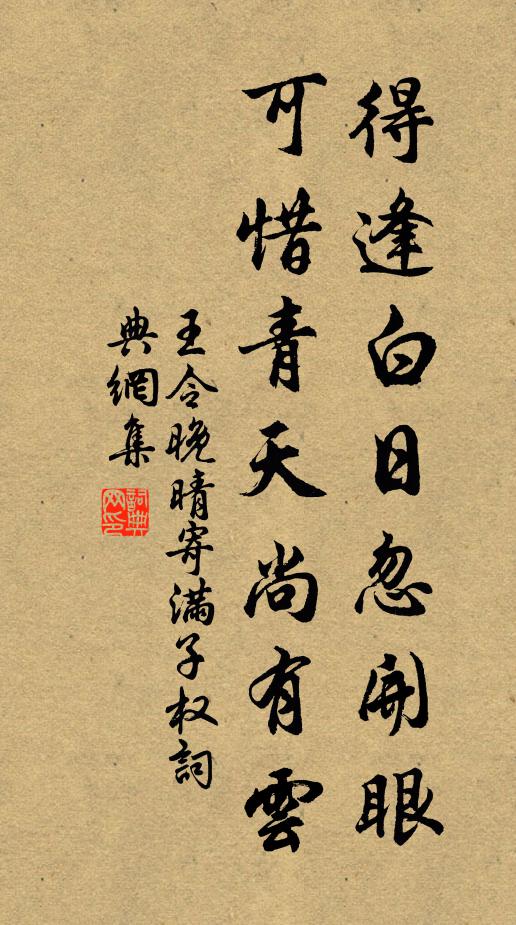 得逢白日忽開眼
可惜青天尚有雲
王令晚晴寄滿子权詞
典網集
詞典
网印